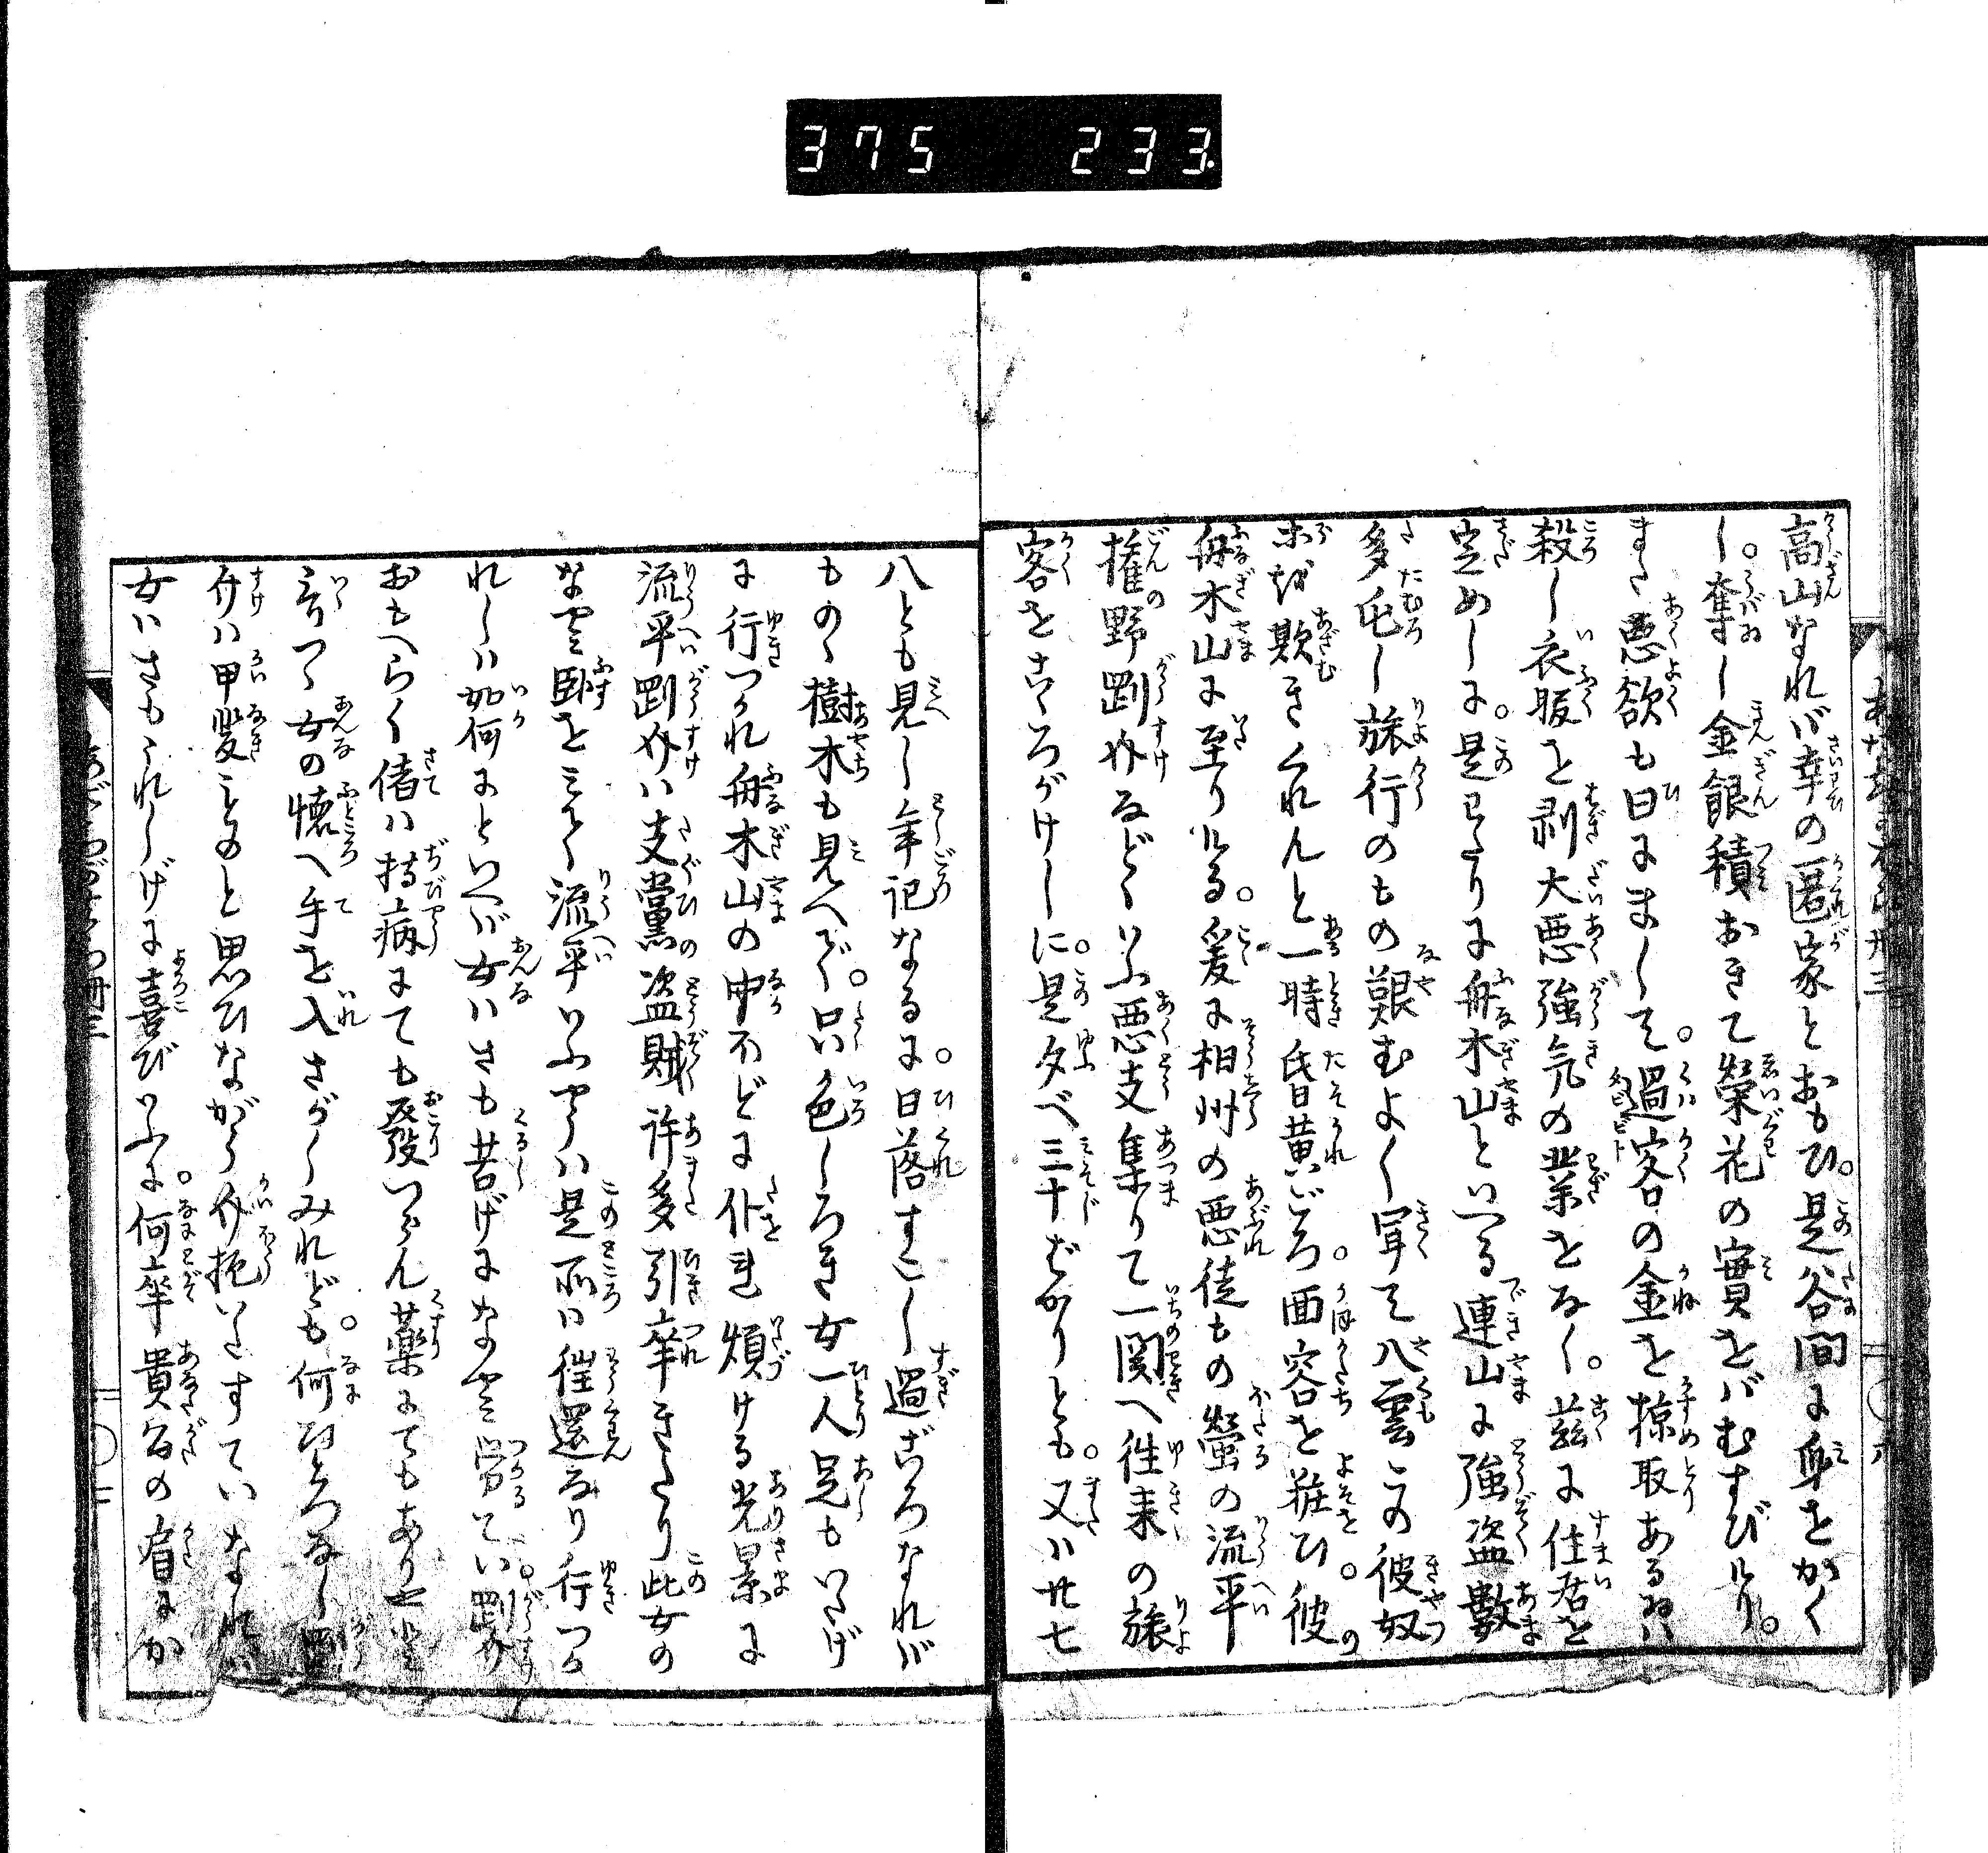 375 233
高山なれバ幸の匿家とおもひ。是谷間に身をかく
し。奪し金銀積おきて榮花の實をバむすびけり。
また悪欲も日にまして。過客の金を掠取あるひハ
殺し衣服を剥大悪強気の業となく。茲に住居を
定めしに。是わたりに舟木山といへる連山に強盗數
多屯し旅行のもの艱むよく聞て八雲この彼奴
ホを欺きくれんと一時昏黄ごろ。面容を粧ひ。彼
舟木山に至りける。爰に相州の悪徒もの螢の流平
権野剛介などゝいふ悪支集りて一関へ往来の旅
客をこゝろがけしに。是夕べ三十ばかりとも。又ハ廿七
八とも見へし年記なるに。日落すこし過ごろなれバ
ものゝ樹木も見へで。只色しろき女一人足もいたげ
に行つかれ舟木山の中ほどに仆れ煩ける光景に
流平剛介ハ支黨の盗賊許多引率きたり此女の
なやみ臥をミて流平いふやうハ是所は往還なり行つか
れしハ如何にといへバ女ハさも苦げになやミ労てい。剛介
おもへらく偖ハ持病にても發つらん薬にてもありやと
いつゝ女の懐へ手を入さがしみれども。何ひとつなし剛
介ハ甲斐なきことゝ思ひながら介抱いたすていなれバ
女ハさもうれしげに喜びいふに。何卒貴公の肩にか